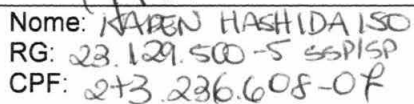 Nome: KAREN HASHIDA ISO
RG: 23.129.500-5 SSP/SP
CPF: 273.236.608-07